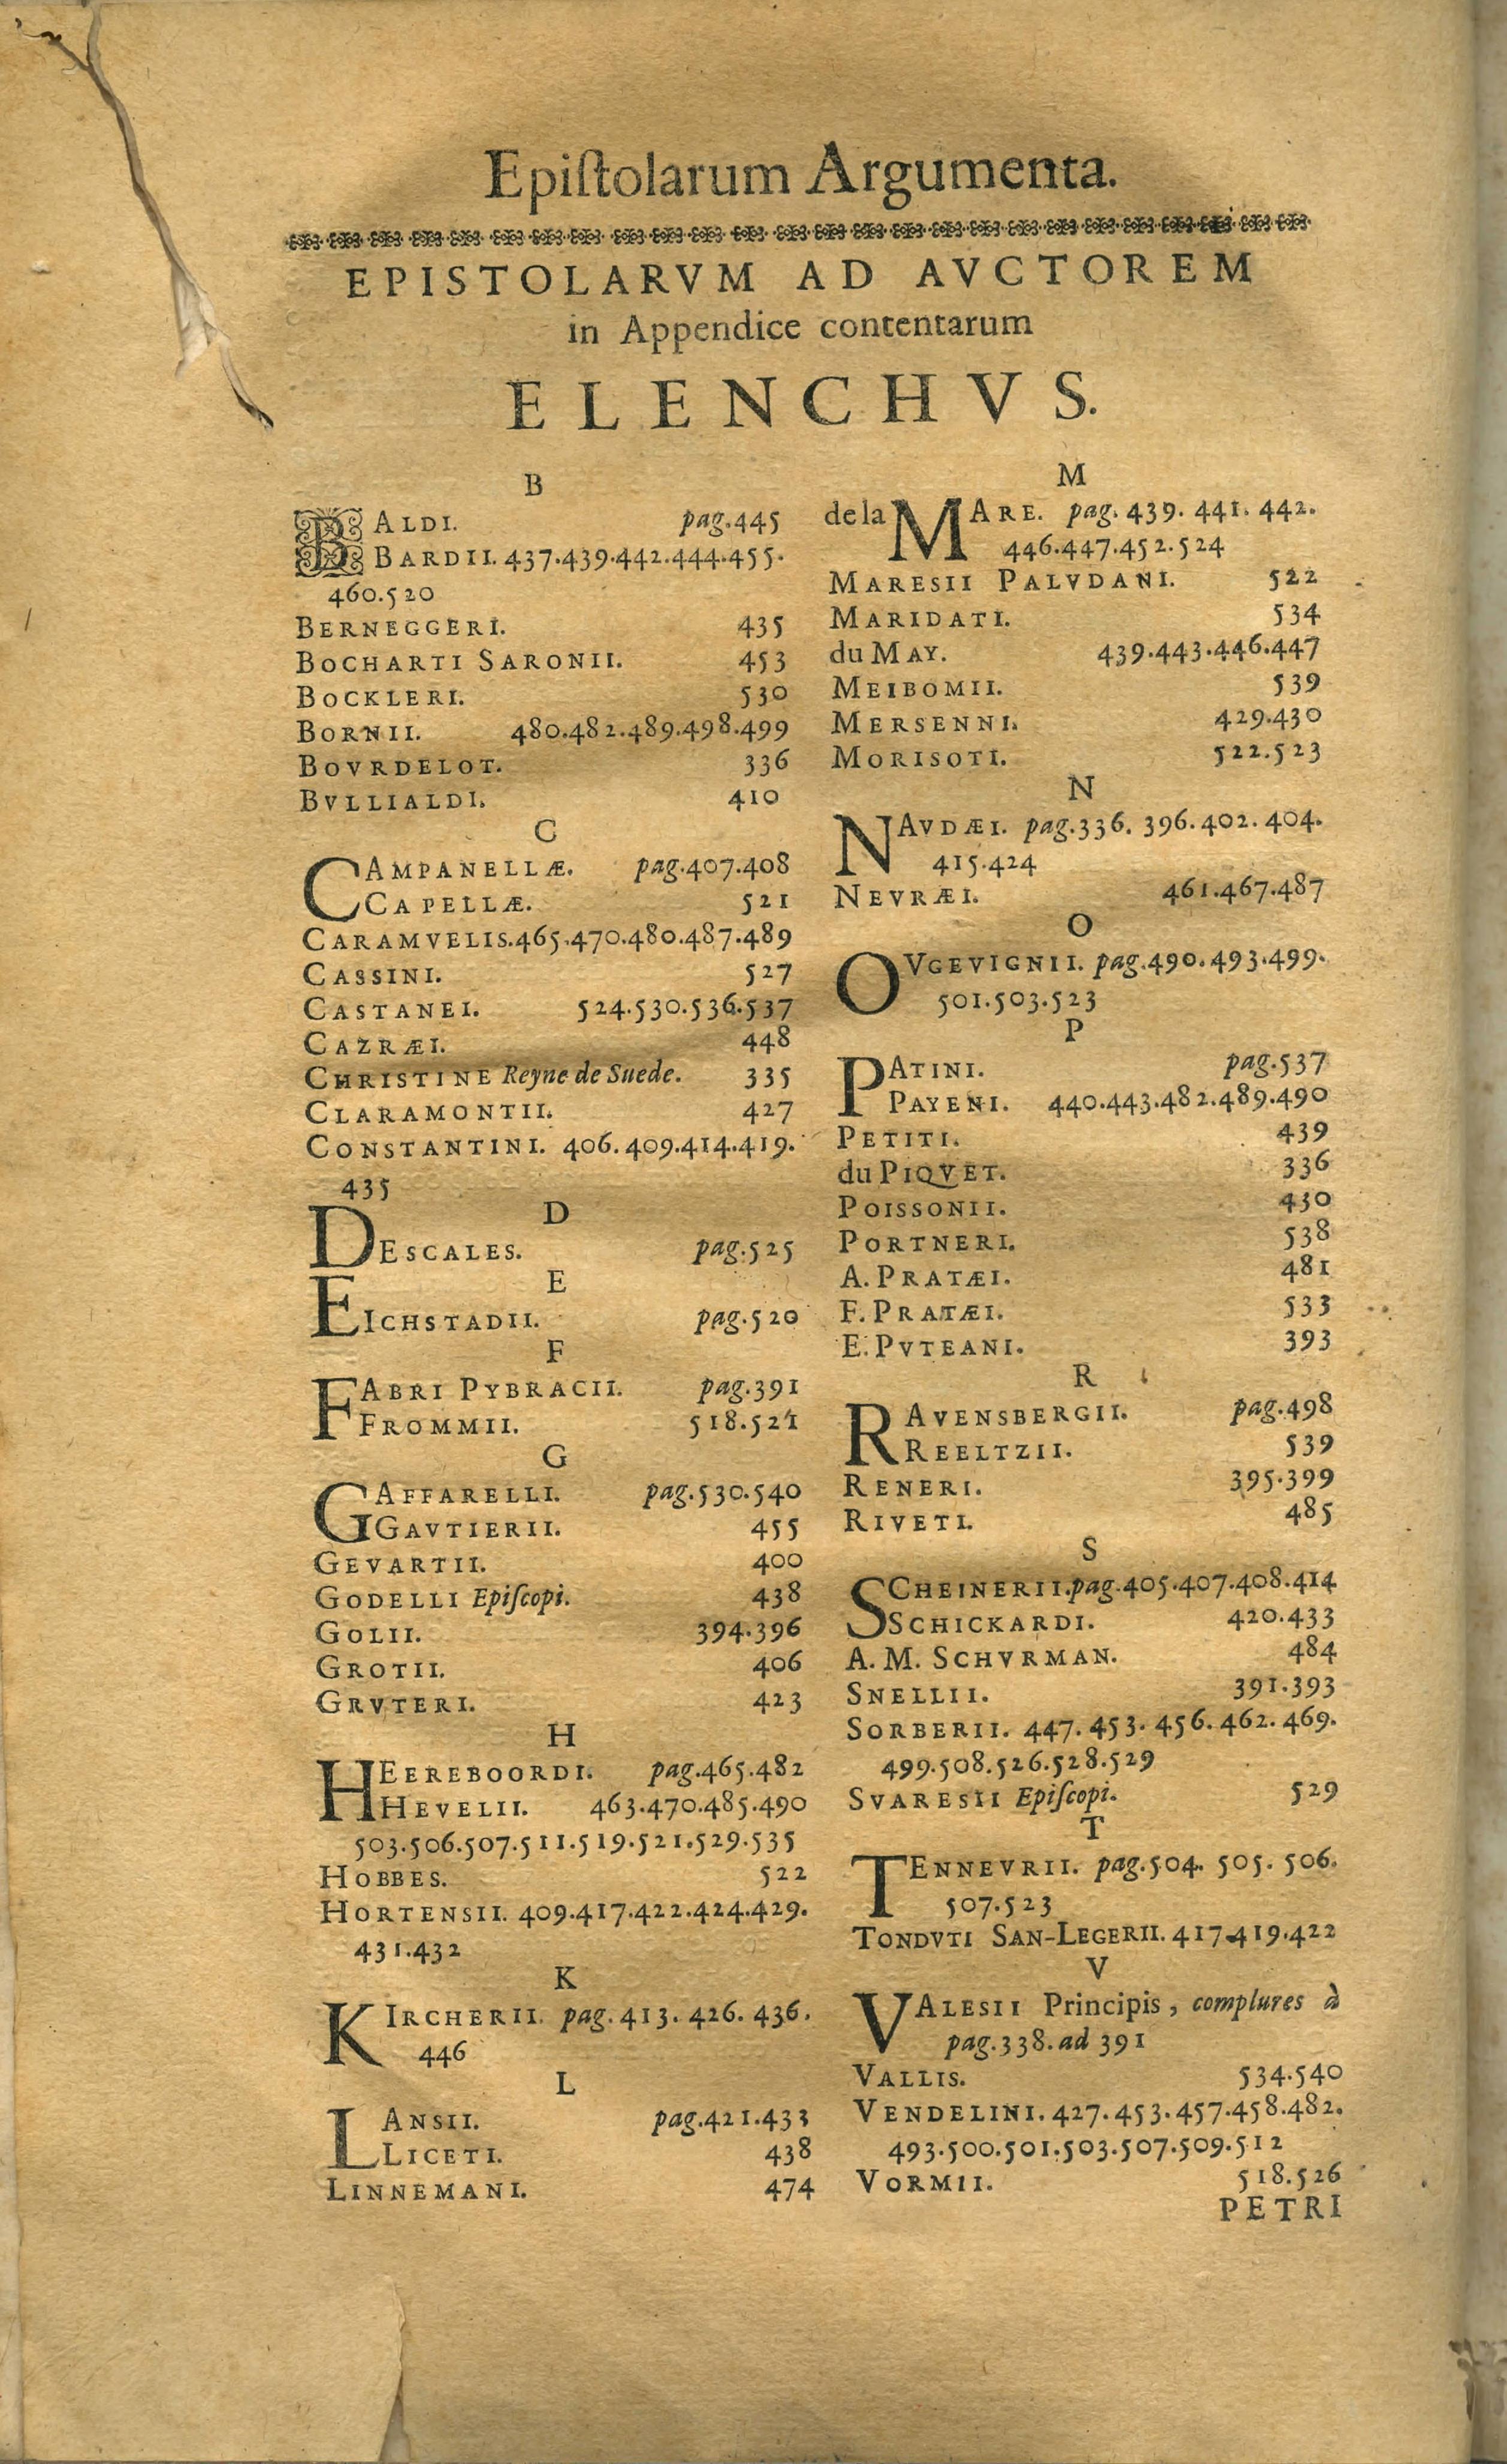 Epiſtolarum Argumenta.
EPISTOLARVM AD AVCTOREM
in Appendice contentarum
ELENCHVS.
B
BALDI. pag.445
BARDII. 437.439.442.444.455.
460.520
BERNEGGERI. 435
BOCHARTI SARONII. 453
BOCKLERI. 530
BORNII. 480.482.489.498.499
BOVRDELOT. 336
BVLLIALDI. 410
C
CAMPANELLÆ. pag.407.408
CAPELLÆ. 521
CARAMVELIS.465.470.480.487.489
CASSINI. 527
CASTANEI. 524.530.536.537
CAZRÆI. 448
CHRISTINE Reyne de Suede. 335
CLARAMONTII. 427
CONSTANTINI. 406.409.414.419.
435
D
DESCALES. pag.525
E
EICHSTADII. pag.520
F
FABRI PYBRACII. pag.391
FROMMII. 518.521
G
GAFFARELLI. pag.530.540
GAVTIERII. 455
GEVARTII. 400
GODELLI Epiſcopi. 438
GOLII. 394.396
GROTII. 406
GRVTERI. 423
H
HEEREBOORDI. pag.465.482
HEVELII. 463.470.485.490
503.506.507.511.519.521.529.535
HOBBES. 522
HORTENSII. 409.417.422.424.429.
431.432
K
KIRCHERII. pag.413.426.436.
446
L
LANSII. pag.421.433
LICETI. 438
LINNEMANI. 474
M
de la MARE. pag.439.441.442.
446.447.452.524
MARESII PALVDANI. 522
MARIDATI. 534
du MAY. 439.443.446.447
MEIBOMII. 539
MERSENNI. 429.430
MORISOTI. 522.523
N
NAVDÆI. pag.336.396.402.404.
415.424
NEVRÆI. 461.467.487
O
OVGEVIGNII. pag.490.493.499.
501.503.523
P
PATINI. pag.537
PAYENI. 440.443.482.489.490
PETITI. 439
du PIQVET. 336
POISSONII. 430
PORTNERI. 538
A. PRATÆI. 481
F. PRATÆI. 533
E. PVTEANI. 393
R
RAVENSBERGII. pag.498
REELTZII. 539
RENERI. 395.399
RIVETI. 485
S
SCHEINERII.pag.405.407.408.414
SCHICKARDI. 420.433
A. M. SCHVRMAN. 484
SNELLII. 391.393
SORBERII. 447.453.456.462.469.
499.508.526.528.529
SVARESII Epiſcopi. 529
T
TENNEVRII. pag.504.505.506.
507.523
TONDVTI SAN-LEGERII. 417.419.422
V
VALESII Principis, complures à
pag.338. ad 391
VALLIS. 534.540
VENDELINI. 427.453.457.458.482.
493.500.501.503.507.509.512
VORMII. 518.526
PETRI